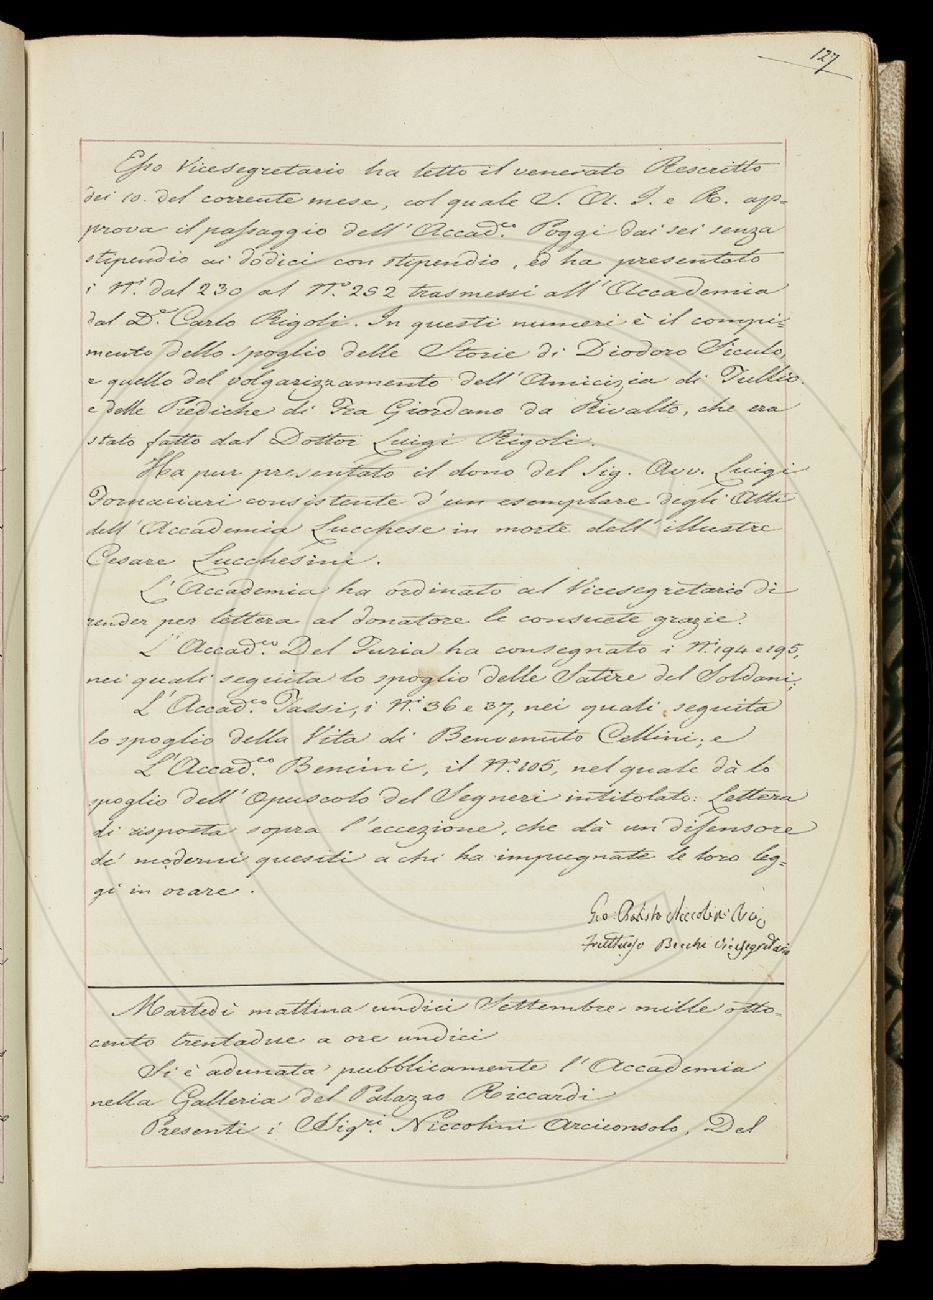 127
Esso Vicesegretario ha letto il venerato Rescritto
dei 10. del corrente mese, col quale S. A. I. e R. ap=
prova il passaggio dell'Accad.co Poggi dai sei senza
stipendio ai dodici con stipendio, ed ha presentato
i N.i dal 230 al N.o 252 trasmessi all'Accademia
dal D.r Carlo Rigoli. In questi numeri è il compi=
mento dello spoglio delle Storie di Diodoro Siculo,
e quello del volgarizzamento dell'Amicizia di Tullio
e delle Prediche di Fra Giordano da Rivalto, che era
stato fatto dal Dottor Luigi Rigoli.
Ha pur presentato il dono del Sig. Avv. Luigi
Fornaciari consistente d'un esemplare degli Atti
dell'Accademia Lucchese in morte dell'illustre
Cesare Lucchesini.
L'Accademia ha ordinato al Vicesegretario di
render per lettera al donatore le consuete grazie.
L'Accad.co Del Furia ha consegnato i N.i 194 e 195,
nei quali seguita lo spoglio delle Satire del Soldani;
L'Accad.co Tassi, i N.i 36 e 37, nei quali seguita
lo spoglio della Vita di Benvenuto Cellini; e
L'Accad.co Bencini, il N.o 105, nel quale dà lo
spoglio dell'Opuscolo del Segneri intitolato: Lettera
di risposta sopra l'eccezione, che dà un difensore
de' moderni quesiti a chi ha impugnate le loro leg=
gi in orare.
Gio: Batista Niccolini
Fruttuoso Becchi Vicesegretario
Martedì mattina undici Settembre mille otto=
cento trentadue a ore undici
Si è adunata pubblicamente l'Accademia
nella Galleria del Palazzo Riccardi
Presenti i Sigri. Niccolini Arciconsolo, Del